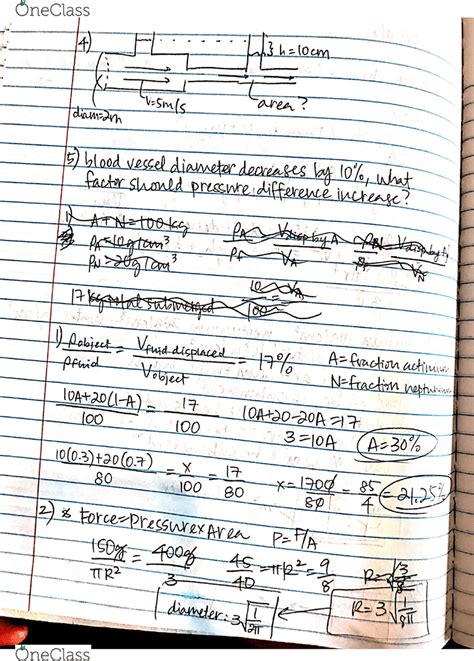 OneClass
4)
h=10cm
v=5m/s
area?
diam=2m
5) blood vessel diameter decreases by 10%, what
factor should pressure difference increase?
1) A+N=100kg
ρA=10g/cm³
ρN=20g/cm³
17kg total submerged
1) ρobject / ρfluid = Vfluid displaced / Vobject = 17%
A=fraction actinium
N=fraction neptunium
10A+20(1-A) / 100 = 17 / 100
10A+20-20A=17
3=10A
A=30%
10(0.3)+20(0.7) / 80 = x / 100 = 17 / 80
x= 1700 / 80 = 85 / 4 = 21.25%
2) Force=Pressure×Area
P=F/A
150g / πR² = 400g / 3
45 / 40 = πR² = 9 / 8
R=3√1/8π
diameter: 3√1/2π
OneClass